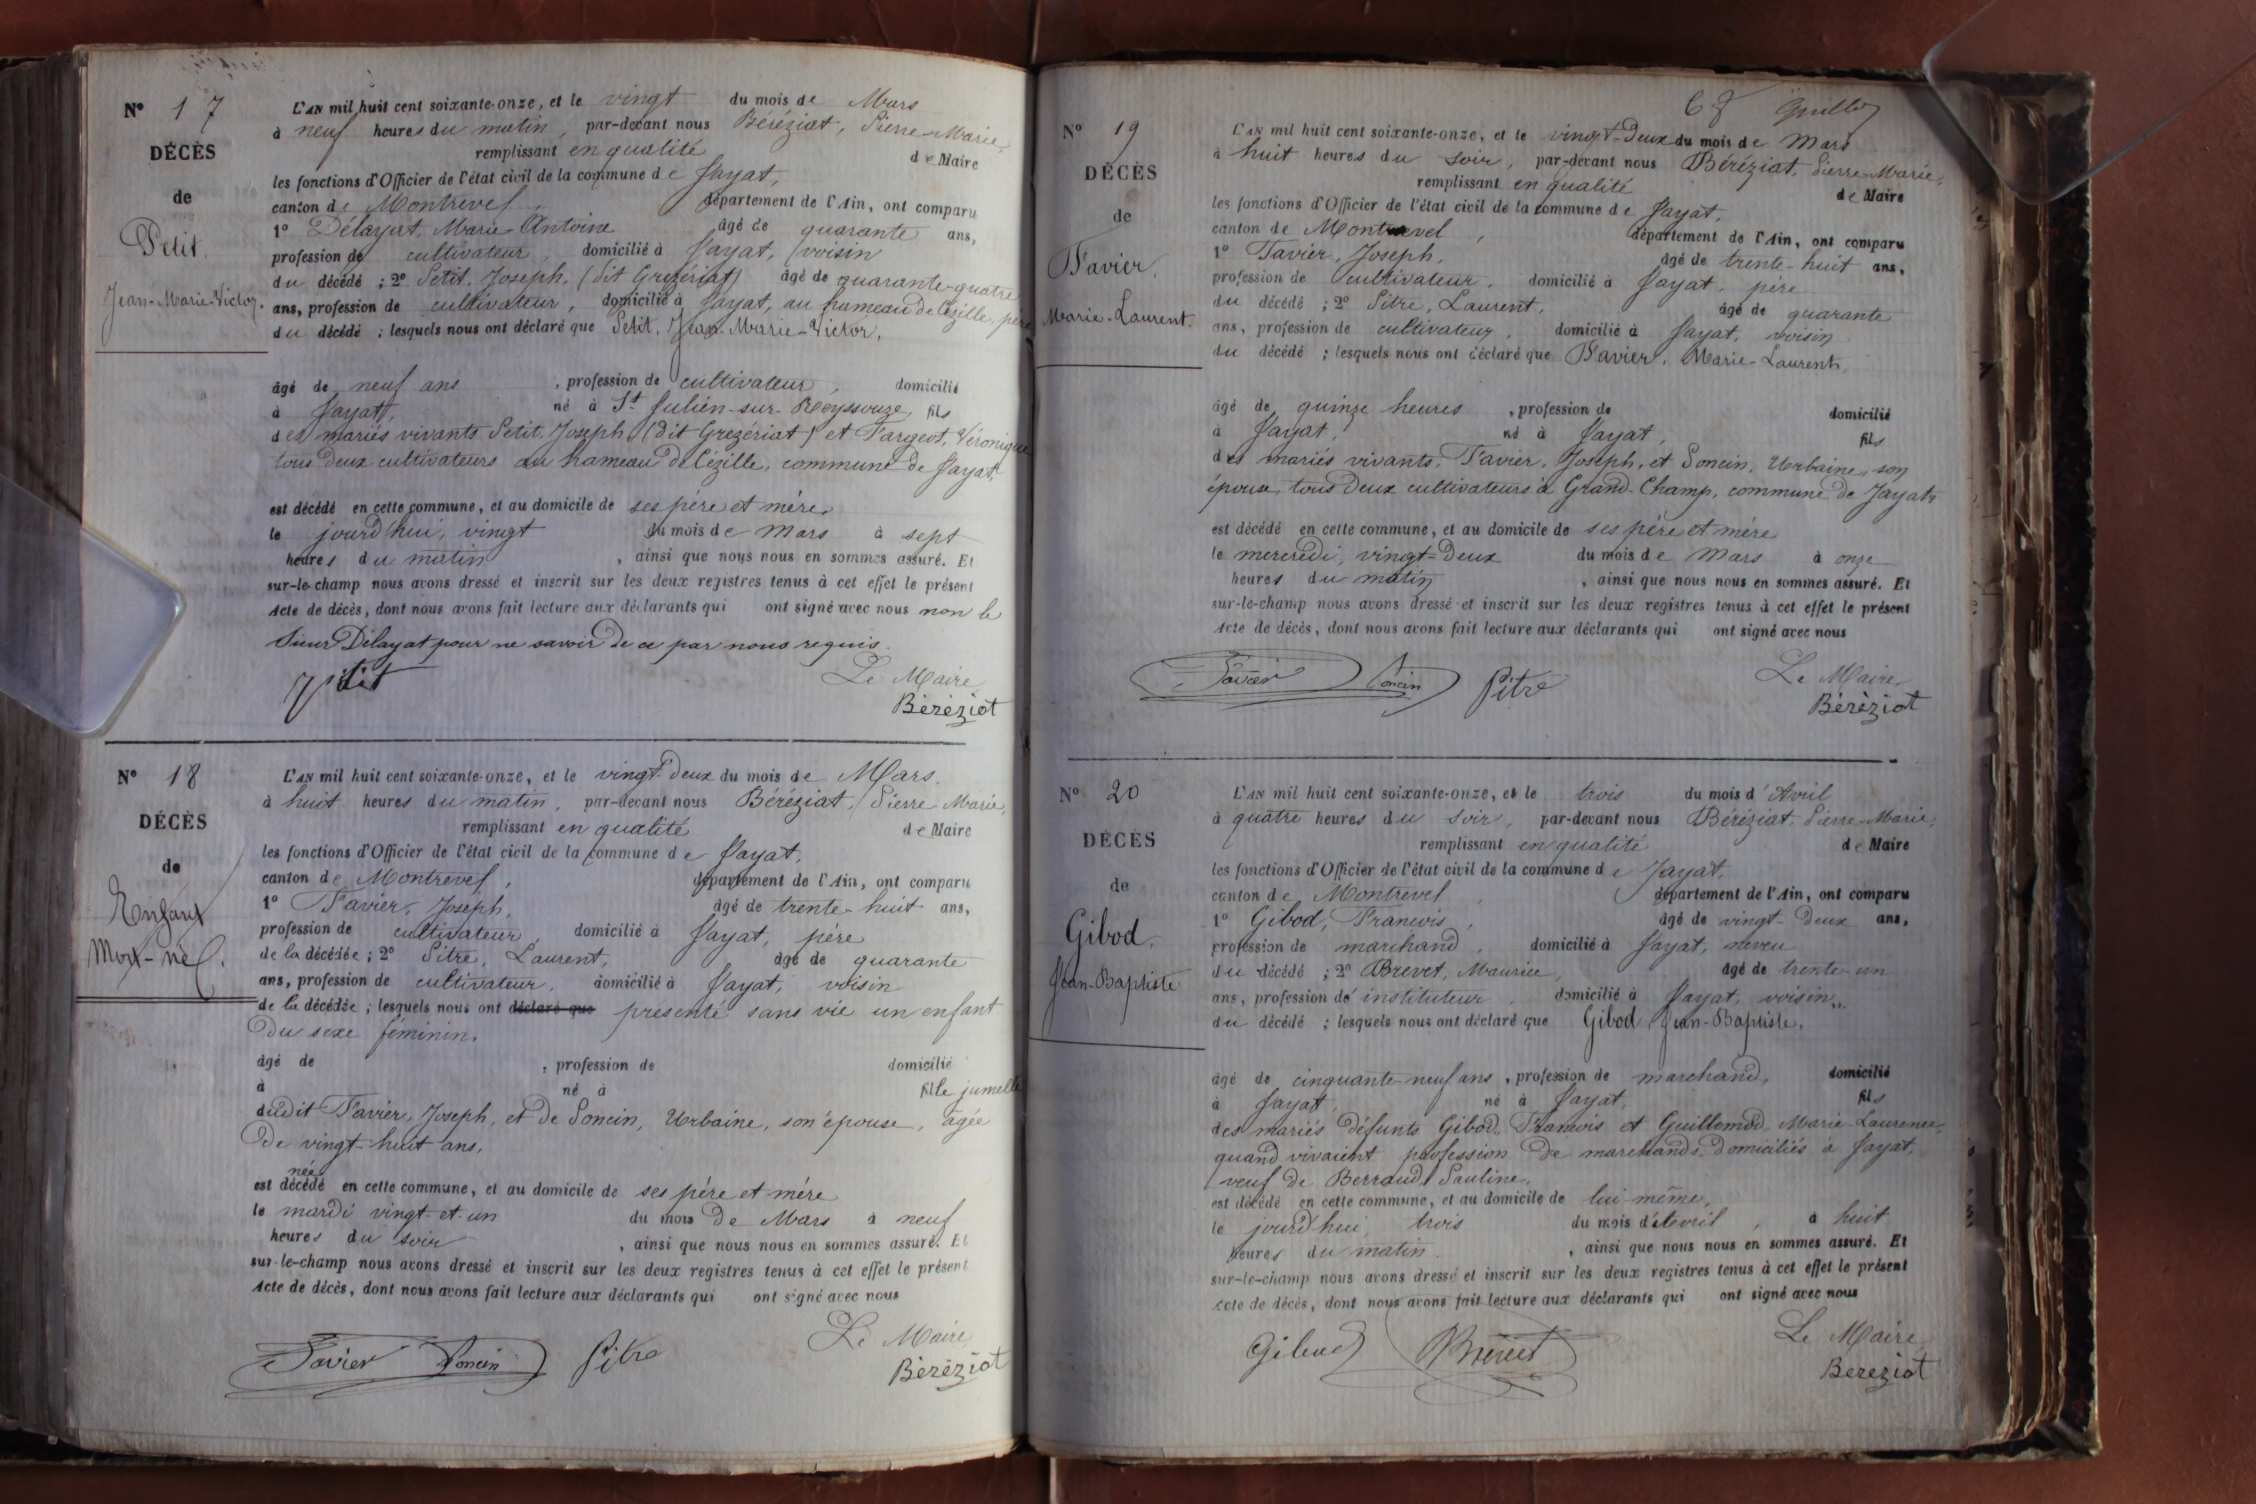 N° 17
DÉCÈS
de
Petit.
Jean-Marie-Victor.
L'AN mil huit cent soixante-onze, et le vingt du mois de Mars
à neuf heures du matin, par-devant nous Béréziat, Pierre-Marie,
remplissant en qualité de Maire
les fonctions d'Officier de l'état civil de la commune de Jayat,
canton de Montrevel, département de l'Ain, ont comparu
1° Délayat, Marie-Antoine âgé de quarante ans,
profession de cultivateur, domicilié à Jayat, voisin
du décédé ; 2° Petit, Joseph, (dit Grezériat) âgé de quarante-quatre
ans, profession de cultivateur, domicilié à Jayat, au hameau de Cézille, père
du décédé ; lesquels nous ont déclaré que Petit, Jean-Marie-Victor,
âgé de neuf ans, profession de cultivateur, domicilié
à Jayat, né à St Julien-sur-Reyssouze, fils
des mariés vivants Petit, Joseph, (dit Grezériat) et Fargeot, Véronique
tous deux cultivateurs au hameau de Cézille, commune de Jayat,
est décédé en cette commune, et au domicile de ses père et mère,
le jourd'hui, vingt du mois de Mars à sept
heures du matin, ainsi que nous nous en sommes assuré. Et
sur-le-champ nous avons dressé et inscrit sur les deux registres tenus à cet effet le présent
Acte de décès, dont nous avons fait lecture aux déclarants qui ont signé avec nous non le
Sieur Délayat pour ne savoir de ce par nous requis.
Petit Le Maire
Béréziat
N° 18
DÉCÈS
de
Enfant
Mort-né.
L'AN mil huit cent soixante-onze, et le vingt-deux du mois de Mars.
à huit heures du matin, par-devant nous Béréziat, Pierre-Marie,
remplissant en qualité de Maire
les fonctions d'Officier de l'état civil de la commune de Jayat,
canton de Montrevel, département de l'Ain, ont comparu
1° Favier, Joseph, âgé de trente-huit ans,
profession de cultivateur, domicilié à Jayat, père
de la décédée ; 2° Pitre, Laurent, âgé de quarante
ans, profession de cultivateur, domicilié à Jayat, voisin
de la décédée ; lesquels nous ont déclaré que présenté sans vie un enfant
du sexe féminin.
âgé de , profession de domicilié
à né à fille jumelle
dudit Favier, Joseph, et de Poncin, Urbaine, son épouse, âgée
de vingt-huit ans,
née
est décédé en cette commune, et au domicile de ses père et mère
le mardi vingt-et-un du mois de Mars à neuf
heures du soir, ainsi que nous nous en sommes assuré. Et
sur-le-champ nous avons dressé et inscrit sur les deux registres tenus à cet effet le présent
Acte de décès, dont nous avons fait lecture aux déclarants qui ont signé avec nous
Favier Poncin Pitre Le Maire
Béréziat
N° 19
DÉCÈS
de
Favier,
Marie-Laurent.
L'AN mil huit cent soixante-onze, et le vingt-deux du mois de Mars
à huit heures du soir, par-devant nous Béréziat, Pierre-Marie,
remplissant en qualité de Maire
les fonctions d'Officier de l'état civil de la commune de Jayat,
canton de Montrevel, département de l'Ain, ont comparu
1° Favier, Joseph, âgé de trente-huit ans,
profession de cultivateur, domicilié à Jayat, père
du décédé ; 2° Pitre, Laurent, âgé de quarante
ans, profession de cultivateur, domicilié à Jayat, voisin
du décédé ; lesquels nous ont déclaré que Favier, Marie-Laurent,
âgé de quinze heures, profession de domicilié
à Jayat, né à Jayat, fils
des mariés vivants, Favier, Joseph, et Poncin, Urbaine, son
épouse, tous deux cultivateurs à Grand-Champ, commune de Jayat,
est décédé en cette commune, et au domicile de ses père et mère
le mercredi, vingt-deux du mois de Mars à onze
heures du matin, ainsi que nous nous en sommes assuré. Et
sur-le-champ nous avons dressé et inscrit sur les deux registres tenus à cet effet le présent
Acte de décès, dont nous avons fait lecture aux déclarants qui ont signé avec nous
Favier Poncin Pitre Le Maire
Béréziat
N° 20
DÉCÈS
de
Gibod,
Jean-Baptiste
L'AN mil huit cent soixante-onze, et le trois du mois d'Avril
à quatre heures du soir, par-devant nous Béréziat, Pierre-Marie,
remplissant en qualité de Maire
les fonctions d'Officier de l'état civil de la commune de Jayat,
canton de Montrevel, département de l'Ain, ont comparu
1° Gibod, Francois, âgé de vingt-deux ans,
profession de marchand, domicilié à Jayat, neveu
du décédé ; 2° Brevet, Maurice, âgé de trente-un
ans, profession de instituteur, domicilié à Jayat, voisin
du décédé ; lesquels nous ont déclaré que Gibod Jean-Baptiste,
âgé de cinquante-neuf ans, profession de marchand, domicilié
à Jayat, né à Jayat, fils
des mariés défunts Gibod, Francois et Guillemod, Marie-Laurence,
quand vivaient profession de marchands, domiciliés à Jayat,
veuf de Berraud Pauline,
est décédé en cette commune, et au domicile de lui-même,
le jourd'hui, trois du mois d'Avril, à huit
heures du matin, ainsi que nous nous en sommes assuré. Et
sur-le-champ nous avons dressé et inscrit sur les deux registres tenus à cet effet le présent
Acte de décès, dont nous avons fait lecture aux déclarants qui ont signé avec nous
Gibod Brevet Le Maire
Béréziat